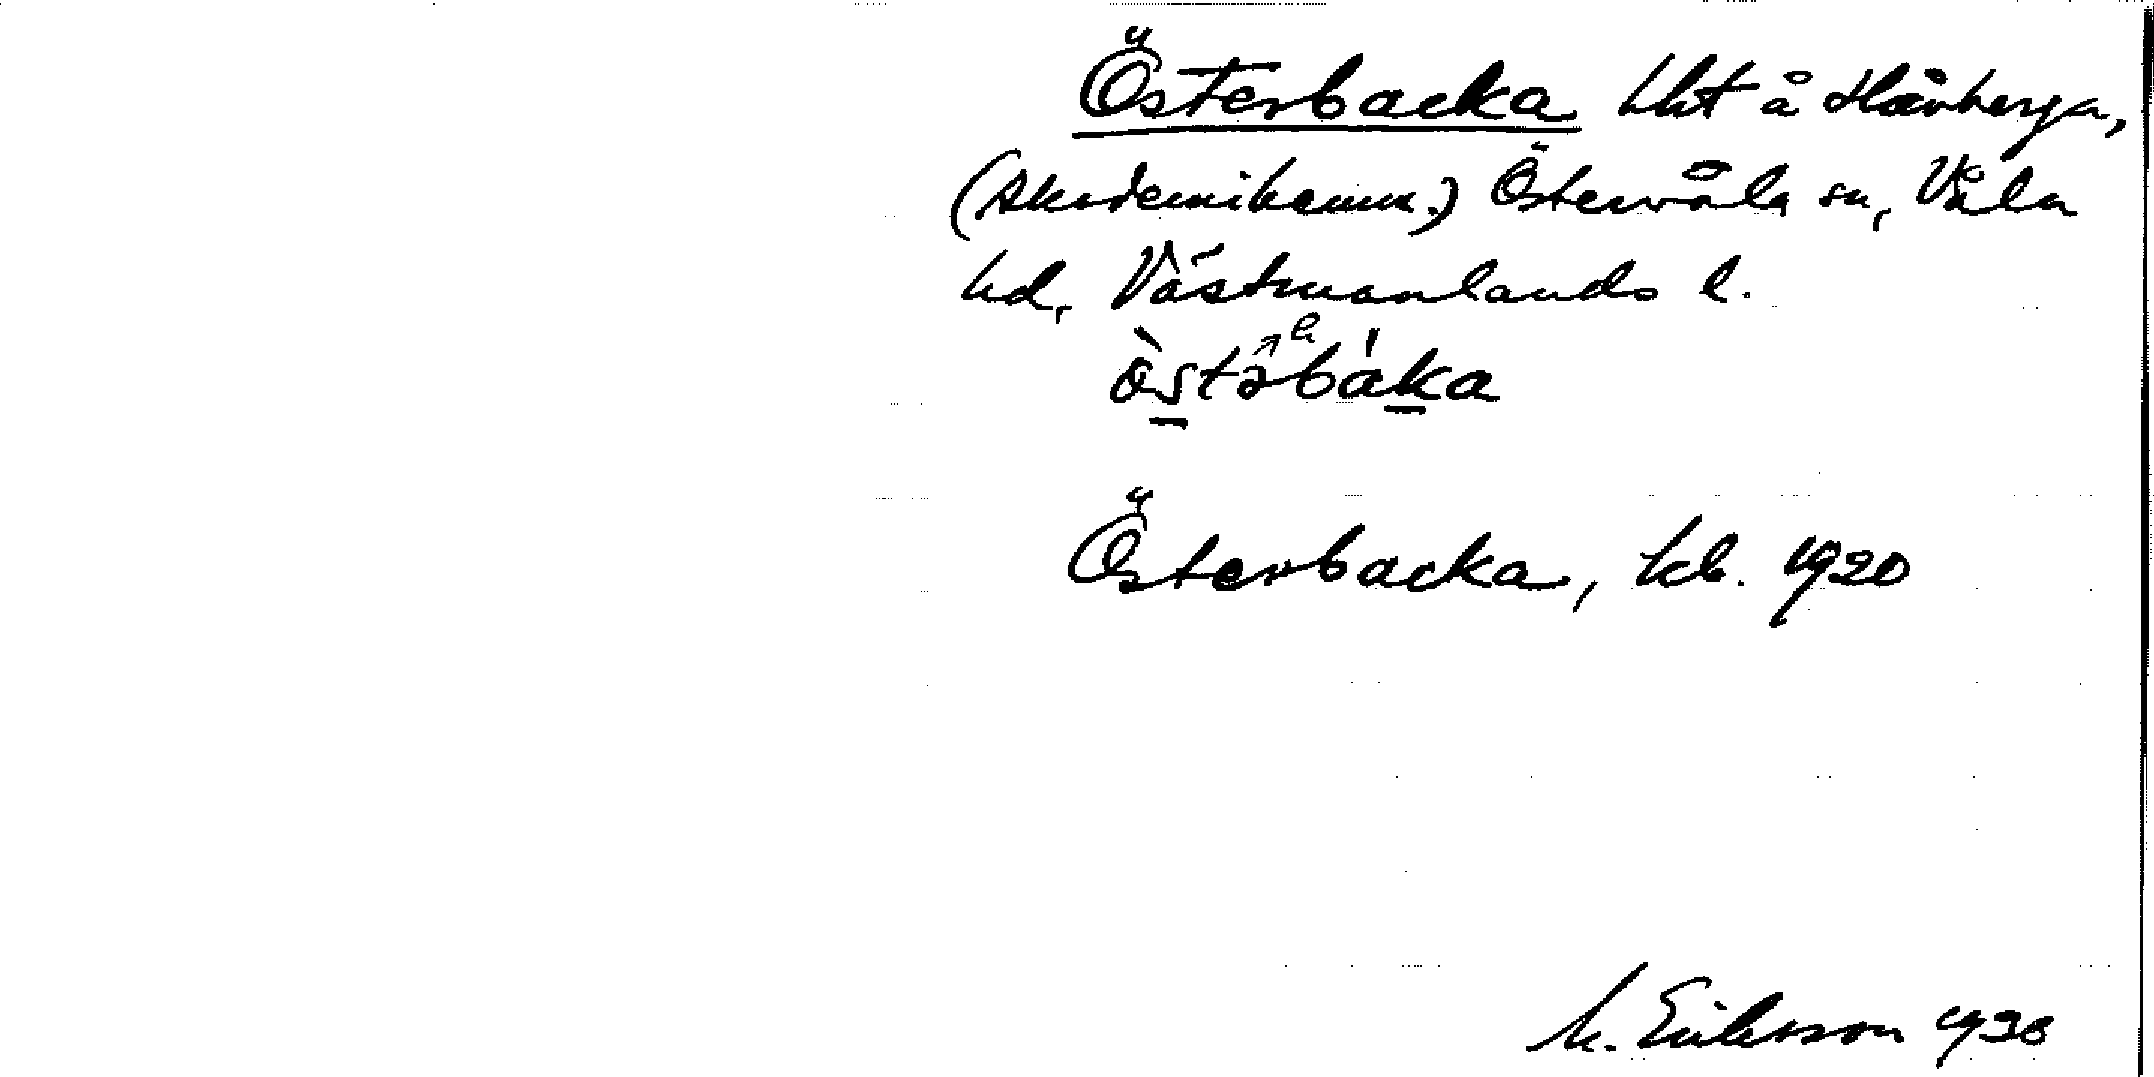 Österbacka lht å Hårberga,
(Akademihemm.) Östervåla sn, Våla
hd, Västmanlands l.
Österbacka, kb. 1920
M. Eriksson 1938